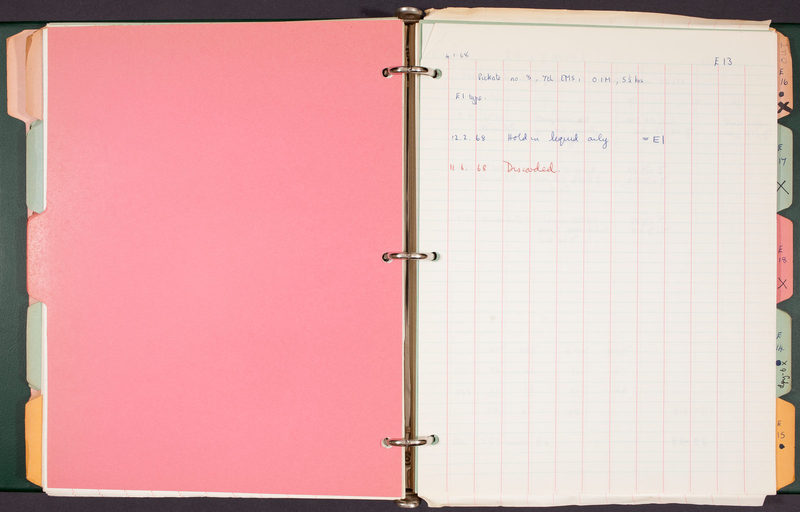 4.1.68 E13
no. 7th EMS, 0.1M, 5½ hrs
E1 type.
12.2.68 Hold in liquid only = E1
11.6.68 Discarded.
E 16 X
E 17 X
E 18 X
E 14 X
E 15